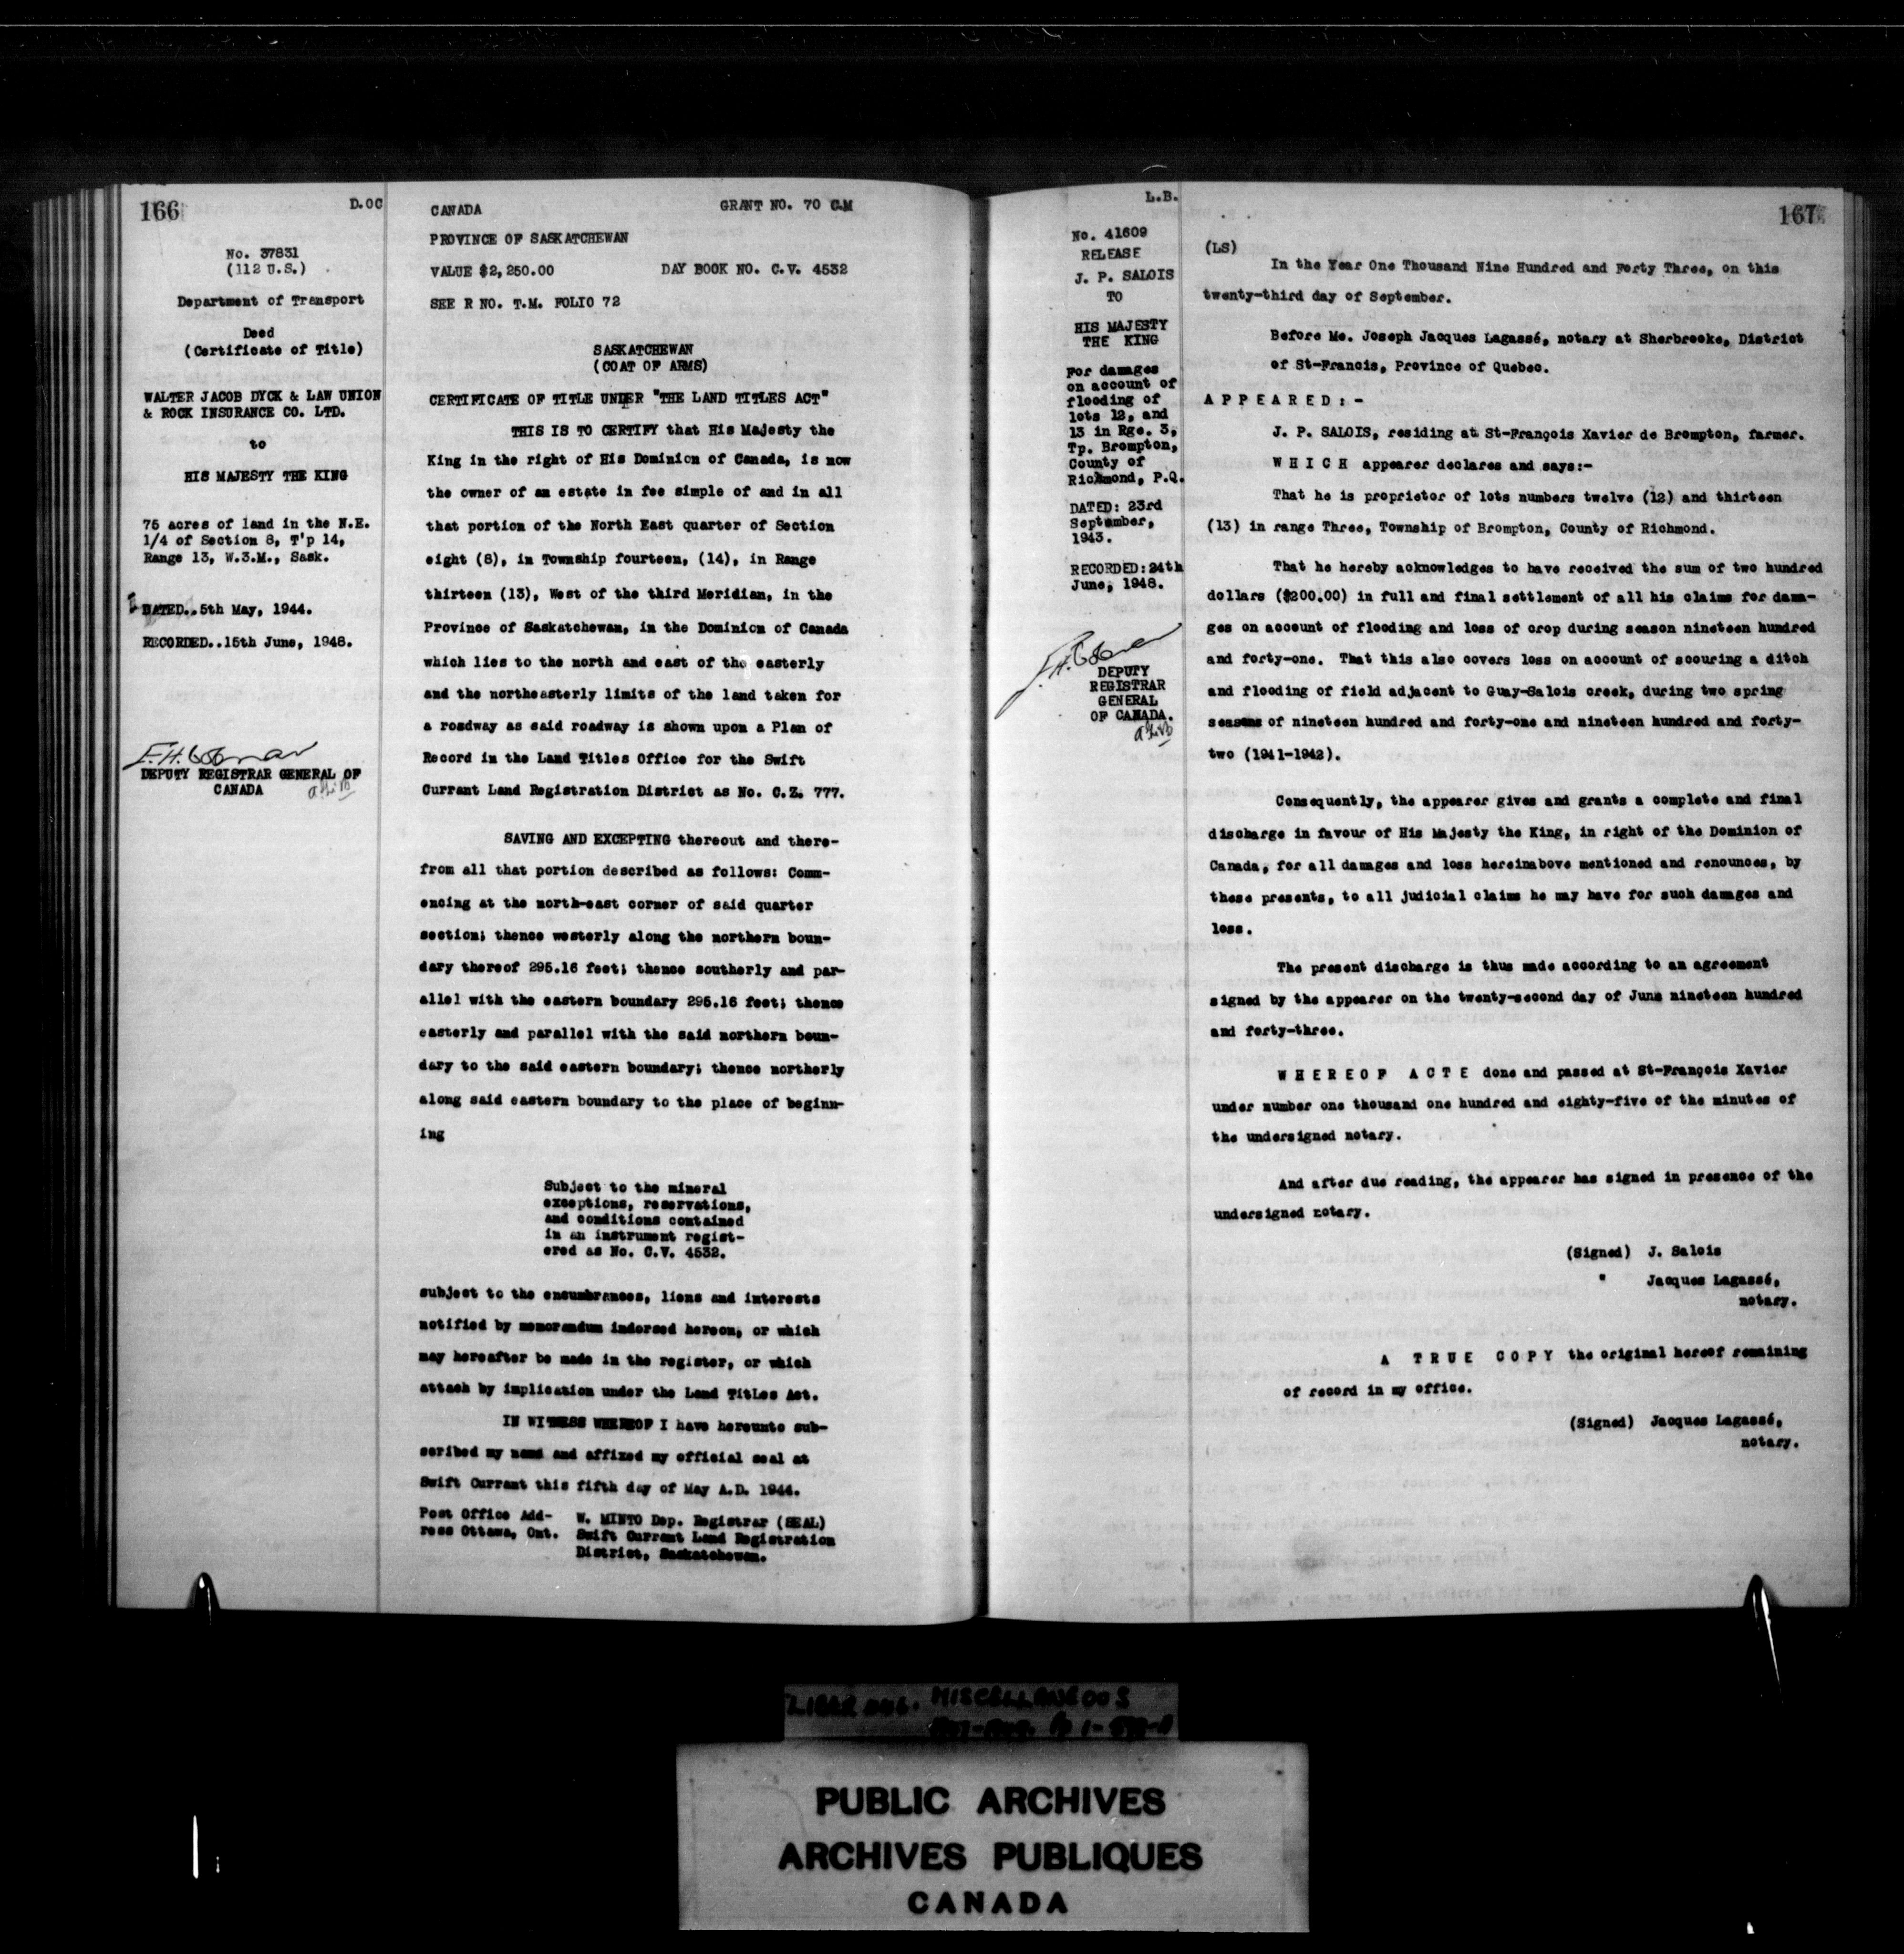 166
D.OC
No. 37831
(112 U.S.)
Department of Transport
Deed
(Certificate of Title)
WALTER JACOB DYCK & LAW UNION
& ROCK INSURANCE CO. LTD.
to
HIS MAJESTY THE KING
75 acres of land in the N.E.
1/4 of Section 8, T'p 14,
Range 13, W.3.M., Sask.
DATED..5th May, 1944.
RECORDED..15th June, 1948.
DEPUTY REGISTRAR GENERAL OF
CANADA
CANADA GRANT NO. 70 C.M
PROVINCE OF SASKATCHEWAN
VALUE $2,250.00 DAY BOOK NO. C.V. 4532
SEE R NO. T.M. FOLIO 72
SASKATCHEWAN
(COAT OF ARMS)
CERTIFICATE OF TITLE UNDER "THE LAND TITLES ACT"
THIS IS TO CERTIFY that His Majesty the
King in the right of His Dominion of Canada, is now
the owner of an estate in fee simple of and in all
that portion of the North East quarter of Section
eight (8), in Township fourteen, (14), in Range
thirteen (13), West of the third Meridian, in the
Province of Saskatchewan, in the Dominion of Canada
which lies to the north and east of the easterly
and the northeasterly limits of the land taken for
a roadway as said roadway is shown upon a Plan of
Record in the Land Titles Office for the Swift
Currant Land Registration District as No. C.Z. 777.
SAVING AND EXCEPTING thereout and there-
from all that portion described as follows: Comm-
encing at the north-east corner of said quarter
section; thence westerly along the northern boun-
dary thereof 295.16 feet; thence southerly and par-
allel with the eastern boundary 295.16 feet; thence
easterly and parallel with the said northern boun-
dary to the said eastern boundary; thence northerly
along said eastern boundary to the place of beginn-
ing
Subject to the mineral
exceptions, reservations,
and conditions contained
in an instrument regist-
ered as No. C.V. 4532.
subject to the encumbrances, liens and interests
notified by memorandum indorsed hereon, or which
may hereafter be made in the register, or which
attach by implication under the Land TitLes Act.
IN WITNESS WHEREOF I have hereunto sub-
scribed my name and affixed my official seal at
Swift Currant this fifth day of May A.D. 1944.
Post Office Add- W. MINTO Dep. Registrar (SEAL)
ress Ottawa, Ont. Swift Currant Land Registration
District, Saskatchewan.
L.B.
167
No. 41609
RELEASE
J. P. SALOIS
TO
HIS MAJESTY
THE KING
For damages
on account of
flooding of
lots 12, and
13 in Rge. 3,
Tp. Brompton,
County of
Richmond, P.Q.
DATED: 23rd
September,
1943.
RECORDED:24th
June, 1948.
DEPUTY
REGISTRAR
GENERAL
OF CANADA.
(LS)
In the Year One Thousand Nine Hundred and Forty Three, on this
twenty-third day of September.
Before Me. Joseph Jacques Lagassé, notary at Sherbrooke, District
of St-Francis, Province of Quebec.
A P P E A R E D : -
J. P. SALOIS, residing at St-François Xavier de Brompton, farmer.
W H I C H appearer declares and says:-
That he is proprietor of lots numbers twelve (12) and thirteen
(13) in range Three, Township of Brompton, County of Richmond.
That he hereby acknowledges to have received the sum of two hundred
dollars ($200.00) in full and final settlement of all his claims for dama-
ges on account of flooding and loss of crop during season nineteen hundred
and forty-one. That this also covers loss on account of scouring a ditch
and flooding of field adjacent to Guay-Salois creek, during two spring
seasons of nineteen hundred and forty-one and nineteen hundred and forty-
two (1941-1942).
Consequently, the appearer gives and grants a complete and final
discharge in favour of His Majesty the King, in right of the Dominion of
Canada, for all damages and loss hereinabove mentioned and renounces, by
these presents, to all judicial claims he may have for such damages and
loss.
The present discharge is thus made according to an agreement
signed by the appearer on the twenty-second day of June nineteen hundred
and forty-three.
W H E R E O F A C T E done and passed at St-François Xavier
under number one thousand one hundred and eighty-five of the minutes of
the undersigned notary.
And after due reading, the appearer has signed in presence of the
undersigned notary.
(Signed) J. Salois
" Jacques Lagassé,
notary.
A T R U E C O P Y the original hereof remaining
of record in my office.
(Signed) Jacques Lagassé,
notary.
MISCELLANEOUS
PUBLIC ARCHIVES
ARCHIVES PUBLIQUES
CANADA